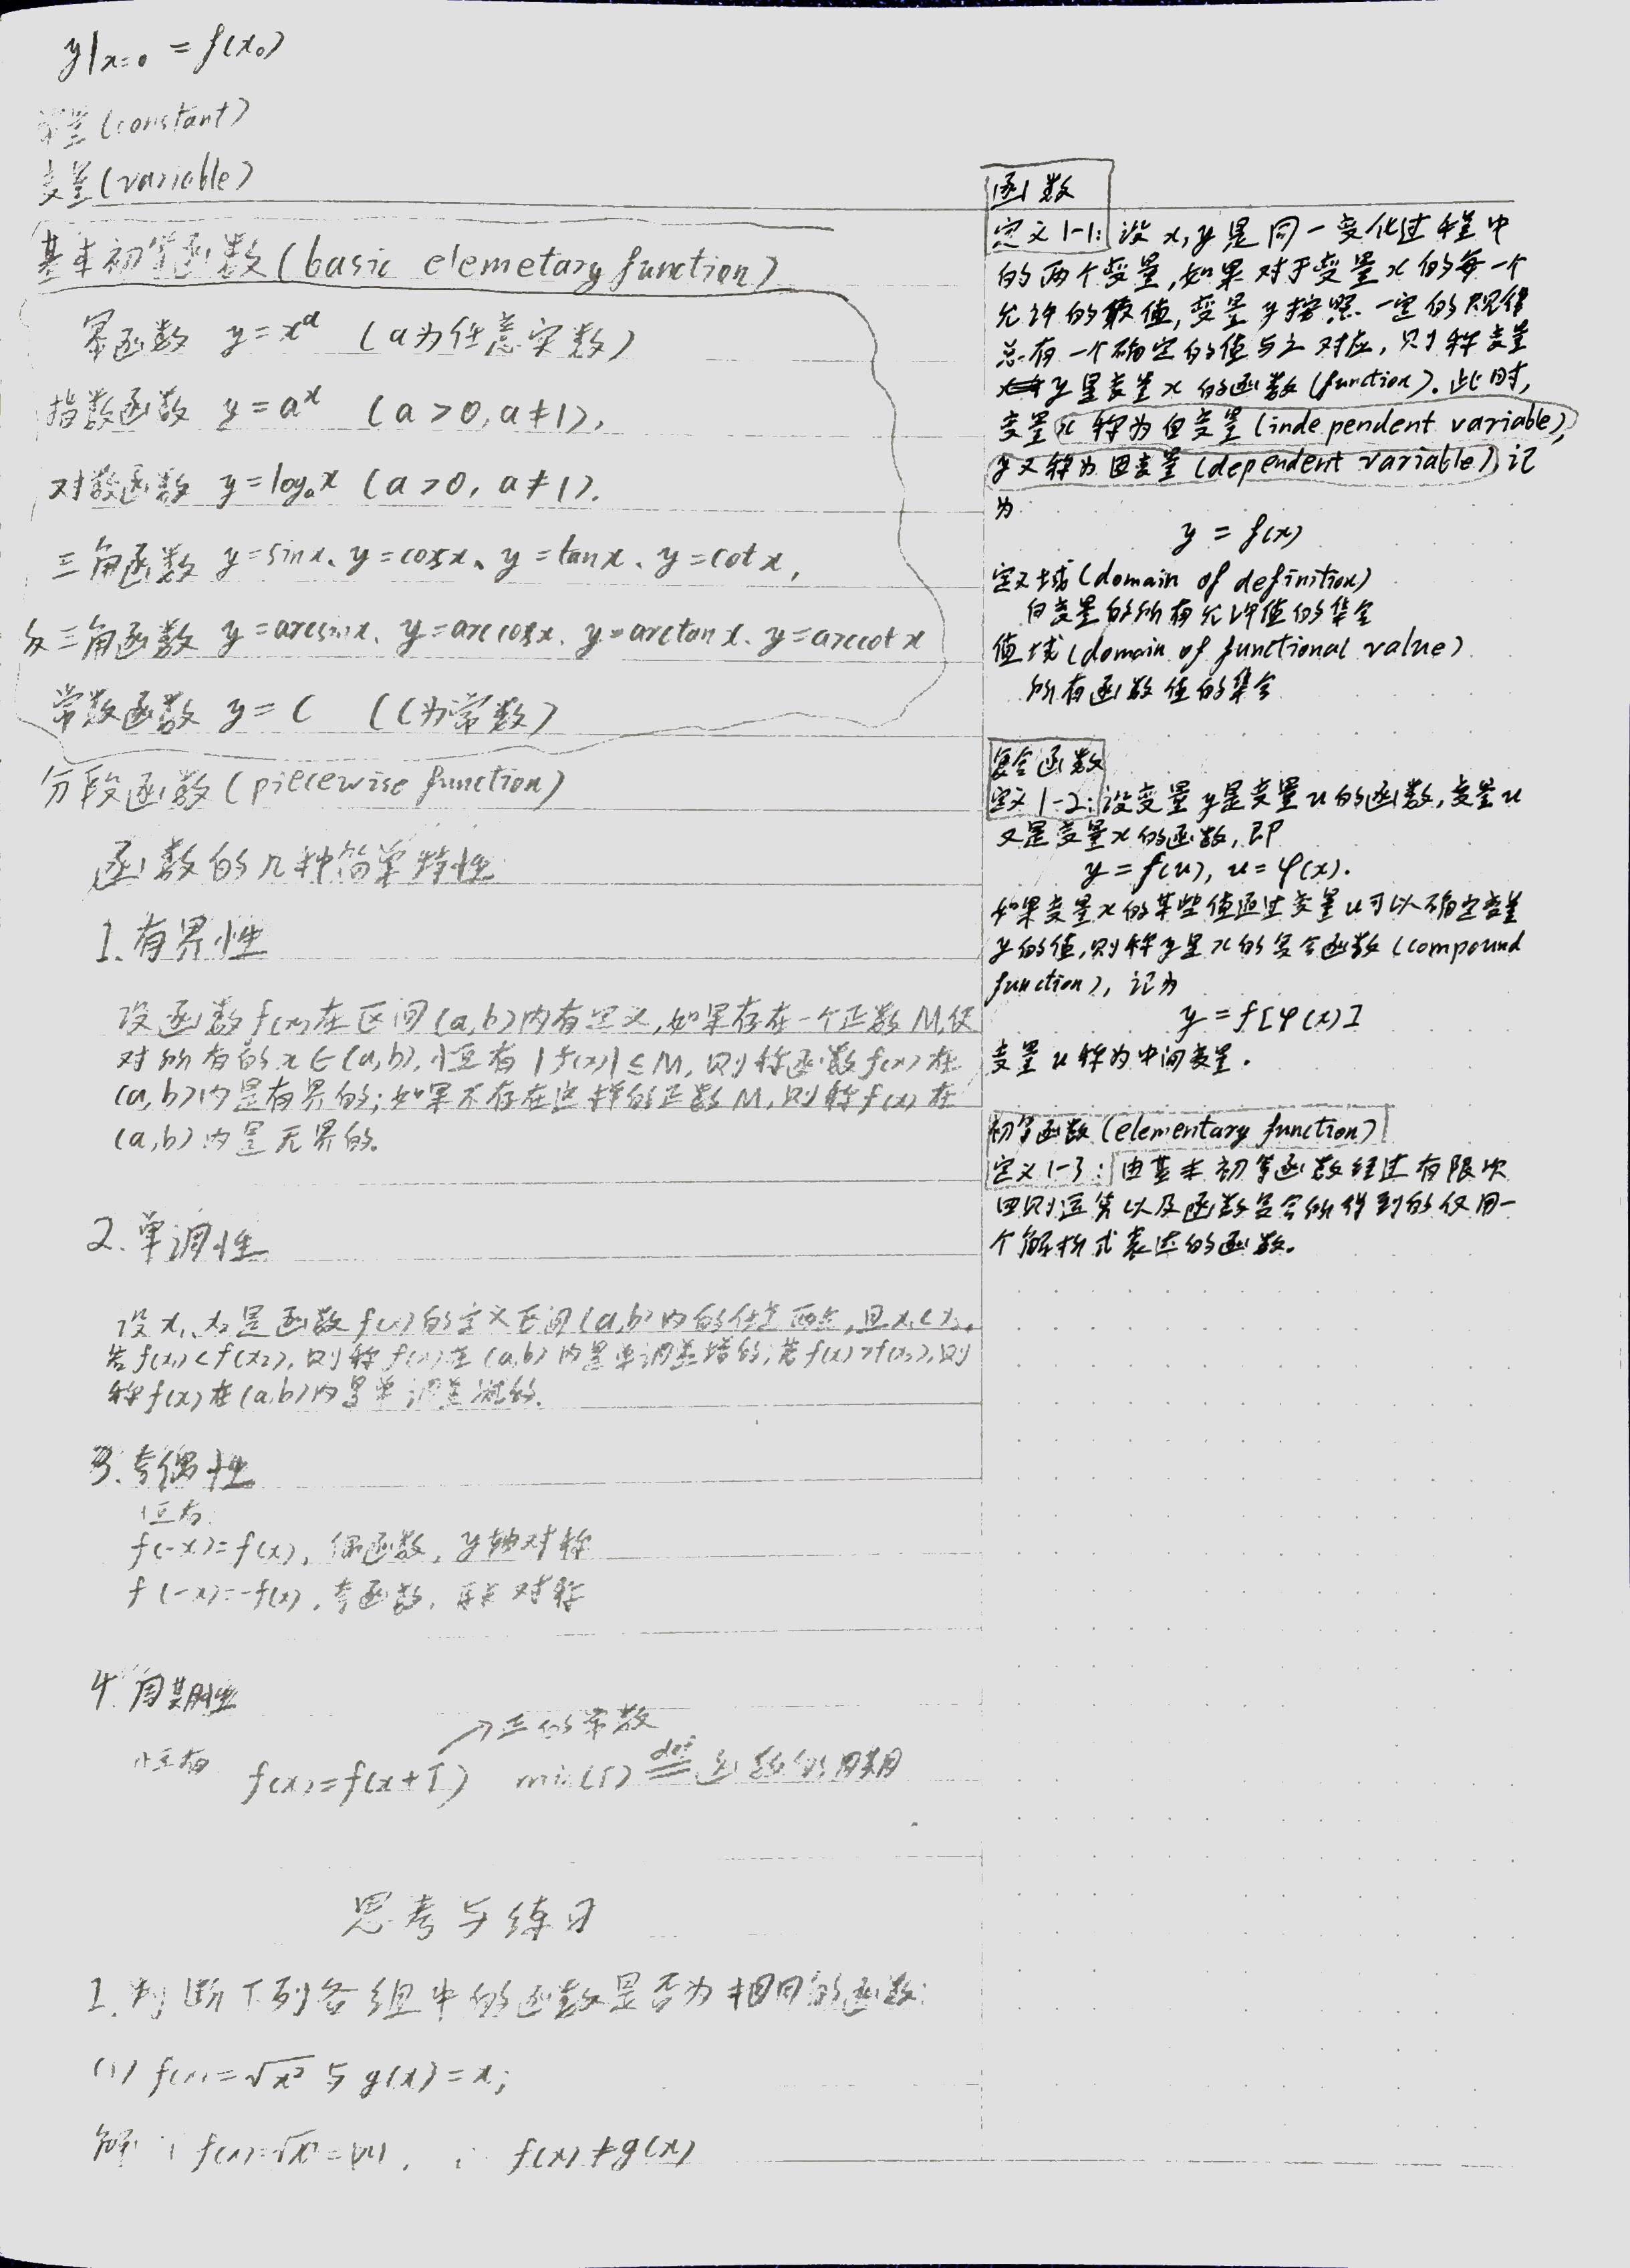 y|x=0 = f(x₀)
常量(constant)
变量(variable)
基本初等函数(basic elemetary function)
幂函数 y=xᵃ (a为任意实数)
指数函数 y=aˣ (a>0,a≠1),
对数函数 y=logₐx (a>0, a≠1).
三角函数 y=sinx、y=cosx、y=tanx、y=cotx,
反三角函数 y=arcsinx、y=arccosx、y=arctanx、y=arccotx
常数函数 y=C (C为常数)
分段函数(piecewise function)
函数的几种简单特性
1.有界性
设函数f(x)在区间(a,b)内有定义,如果存在一个正数M,使
对所有的x∈(a,b),恒有|f(x)|≤M,则称函数f(x)在
(a,b)内是有界的;如果不存在这样的正数M,则称f(x)在
(a,b)内是无界的.
2.单调性
设x₁、x₂是函数f(x)的定义区间(a,b)内的任意两点,且x₁<x₂,
若f(x₁)<f(x₂),则称f(x)在(a,b)内是单调递增的;若f(x₁)>f(x₂),则
称f(x)在(a,b)内是单调递减的.
3.奇偶性
恒有
f(-x)=f(x),偶函数,y轴对称
f(-x)=-f(x),奇函数,原点对称
4.周期性
→正的常数
恒有 f(x)=f(x+T) min(T) def= 函数的周期
思考与练习
1.判断下列各组中的函数是否为相同的函数:
(1) f(x)=√x² 与 g(x)=x;
解 ∵ f(x)=√x²=|x|, ∴ f(x)≠g(x)
函数
定义1-1:设x,y是同一变化过程中
的两个变量,如果对于变量x的每一个
允许的取值,变量y按照一定的规律
总有一个确定的值与之对应,则称变量
y是变量x的函数(function).此时,
变量x称为自变量(independent variable),
y又称为因变量(dependent variable),记
为
y = f(x)
定义域(domain of definition)
自变量的所有允许值的集合
值域(domain of functional value)
所有函数值的集合
复合函数
定义1-2:设变量y是变量u的函数,变量u
又是变量x的函数,即
y=f(u), u=φ(x).
如果变量x的某些值通过变量u可以确定变量
y的值,则称y是x的复合函数(compound
function),记为
y=f[φ(x)]
变量u称为中间变量.
初等函数(elementary function)
定义1-3:由基本初等函数经过有限次
四则运算以及函数复合所得到的仅用一
个解析式表达的函数.